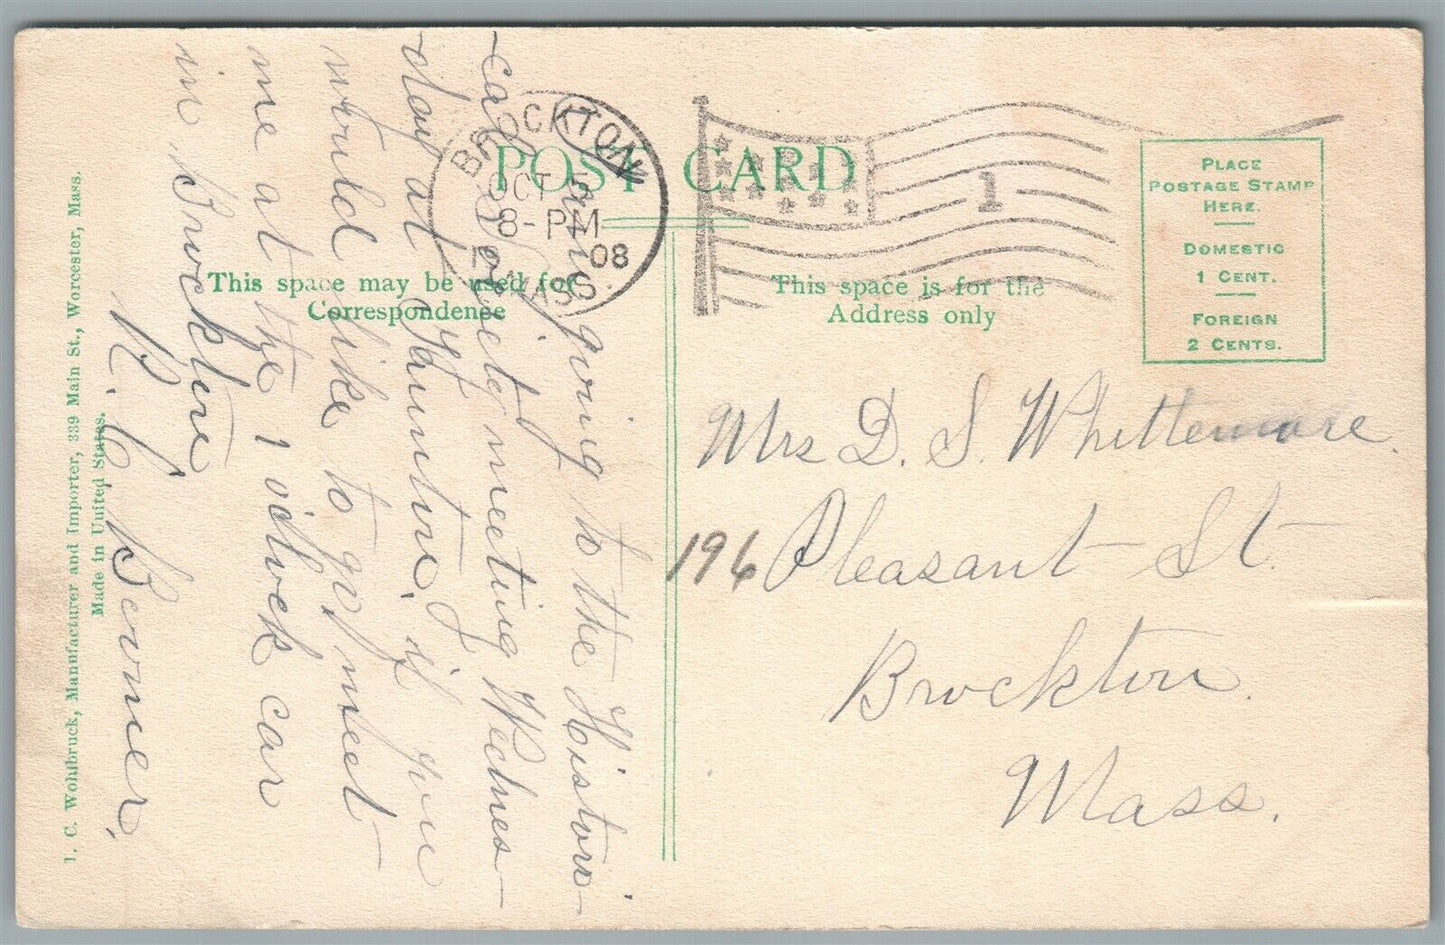 POST CARD
This space may be used for
Correspondence
This space is for the
Address only
PLACE
POSTAGE STAMP
HERE.
DOMESTIC
1 CENT.
FOREIGN
2 CENTS.
BROCKTON
OCT
8-PM
08
MASS.
1
Mrs D. S. Whittemore.
196 Pleasant St.
Brockton.
Mass.
going to the Histori-
cal Society meeting Wednes-
day at Quintin, if you
would like to go, meet
me at the 1 o'clock car
in Brockton
R. C. Berner.
I. C. Wohlbruck, Manufacturer and Importer, 339 Main St., Worcester, Mass.
Made in United States.